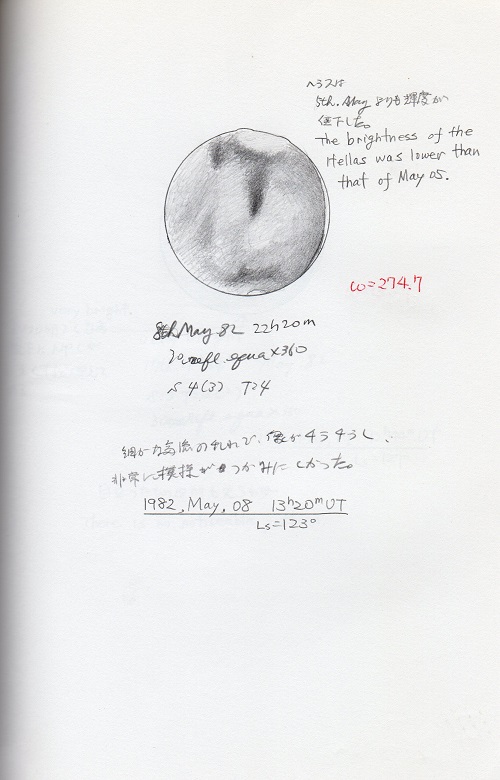 ヘラスは
5th. May よりも輝度が
低下した。
The brightness of the
Hellas was lower than
that of May 05.
ω=274.7
8th May 82 22h20m
refl. equa×360
S 4(3) T=4
細かな高速の乱れで、像がようようし、
非常に模様がつかみにくかった。
1982, May, 08 13h20m UT
Ls=123°